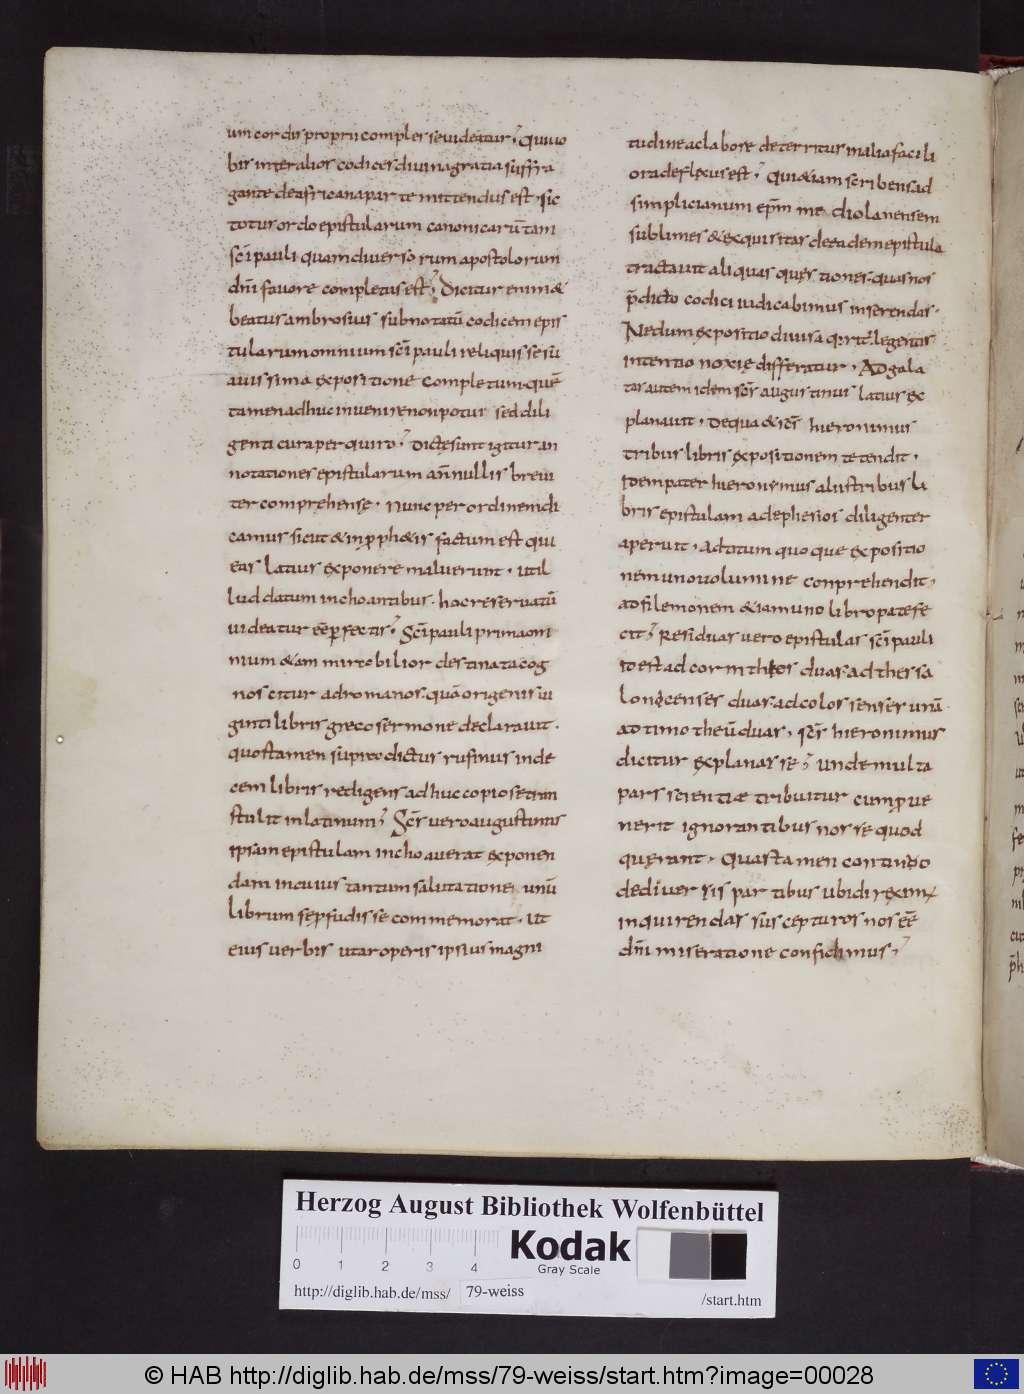 um cordis proprii compler se uideatur; Quiuo
bis inter alios codices diuina gratia suffra
gante de africana parte mittendus est. sic
totus ordo epistularum canonicarū tam
sc̄i pauli quam diuersorum apostolorum
dn̄i fauore completus est; Dicitur enim &
beatus ambrosius subnotatū codicem epis
tularum omnium sc̄i pauli reliquisse su
auissima expositione completum. quē
tamen adhuc inuenire non potui sed dili
genti cura perquiro; Dictę sunt igitur an
notationes epistularum a nonnullis breui
ter comprehensę. Nunc per ordinem di
camus sicut & in pphetis factum est qui
eas latius exponere maluerunt. ut il
lud datum inchoantibus. hoc reseruatū
uideatur eē pfectis; Sc̄i pauli prima om
nium & iam mirabilior destinata cog
noscitur ad romanos. quā origenis ui
ginti libris greco sermone declarauit.
quos tamen supradictus rufinus in de
cem libris redigens adhuc copiose tran
stulit in latinum; Sc̄s uero augustinus
ipsam epistulam inchoauerat exponen
dam in cuius tantum salutatione unū
librum se pfudisse commemorat. Ut
eius uerbis utar operis ipsius magni
tudine ac labore deterritus in alia facili
ora deflexus est; Qui & iam scribens ad
simplicianum ep̄m mediolanensem
sublimes & exquisitas de eadem epistula
tractauit aliquas quęstiones. quas nos
p̄dicto codici iudicabimus inserendas.
Ne dum expositio diuisa queritᷣ. legentis
intentio noxie differatur. Ad gala
tas autem idem sc̄s augustinus latius ex
planauit. De qua & sc̄s hieronimus
tribus libris expositionem tetendit.
Idem pater hieronimus aliis tribus li
bris epistulam ad ephesios diligenter
aperuit. ad titum quoque expositio
nem uno uolumine conprehendit.
ad filemonem & iam uno libro patefe
cit; Residuas uero epistulas sc̄i pauli
Id est ad corintheos duas. ad thessa
lonicenses duas. ad colossenses unū.
ad timotheū duas. sc̄s hieronimus
dicitur explanasse; unde multa
pars scientiæ tribuitur cum p̄ue
nerit ignorantibus nosse quod
quęrant. Quas tamen continuo
de diuersis partibus ubi direxim᷒
inquirendas suscepturos nos eē
dn̄i miseratione confidimus;
Herzog August Bibliothek Wolfenbüttel
0 1 2 3 4
Kodak
Gray Scale
http://diglib.hab.de/mss/ 79-weiss /start.htm
© HAB http://diglib.hab.de/mss/79-weiss/start.htm?image=00028